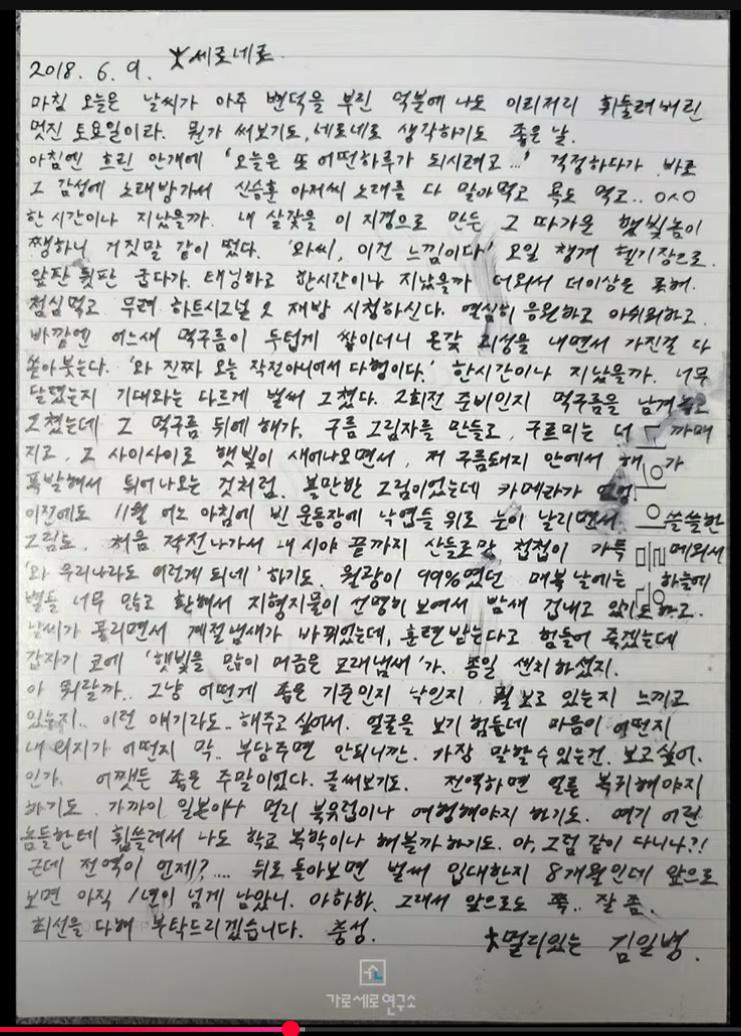 2018. 6. 9. 세로네로.
마침 오늘은 날씨가 아주 변덕을 부린 덕분에 나도 이리저리 휘둘려버린
멋진 토요일이라. 뭔가 써보기도, 네로네로 생각하기도 좋은 날.
아침엔 흐린 안개에 '오늘은 또 어떤하루가 되시려고...' 걱정하다가 바로
그 감성에 노래방가서 신승훈 아저씨 노래를 다 말아먹고 욕도 먹고.. ㅇㅅㅇ
한 시간이나 지났을까. 내 살갗을 이 지경으로 만든 그 따가운 햇빛놈이
쨍하니 거짓말 같이 떴다. '와씨, 이건 느낌이다!' 오일 챙겨 헬기장으로.
앞판 뒷판 굽다가. 태닝하고 한시간이나 지났을까 더워서 더이상은 못해.
점심먹고 무려 하트시그널 2 재방 시청하신다. 열심히 응원하고 아쉬워하고.
바깥엔 어느새 먹구름이 두텁게 쌓이더니 온갖 괴성을 내면서 가진걸 다
쏟아붓는다. '와 진짜 오늘 작전아니어서 다행이다.' 한시간이나 지났을까. 너무
달렸는지 기대와는 다르게 벌써 그쳤다. 2회전 준비인지 먹구름을 남겨놓고
그쳤는데 그 먹구름 뒤에 해가, 구름 그림자를 만들고, 구르미는 더 까매
지고, 그 사이사이로 햇빛이 새어나오면서, 저 구름돼지 안에서 해가
폭발해서 튀어나오는 것처럼. 볼만한 그림이었는데 카메라가 없었
이전에도 11월 어느 아침에 빈 운동장에 낙엽들 위로 눈이 날리면서 쓸쓸한
그림도, 처음 작전나가서 내 시야 끝까지 산들로만 첩첩이 가득 메워서
'와 우리나라도 이렇게 되네' 하기도. 월광이 99%였던 매복 날에는 하늘에
별들 너무 많고 환해서 지형지물이 선명히 보여서 밤새 겁내고 있기도하고.
날씨가 풀리면서 계절냄새가 바뀌었는데, 훈련받는다고 힘들어 죽겠는데
갑자기 코에 '햇빛을 많이 머금은 모래냄새'가. 종일 센치하셨지.
아 뭐랄까.. 그냥 어떤게 좋은 기준인지 낙인지 뭘 보고 있는지 느끼고
있는지.. 이런 얘기라도.. 해주고 싶어서. 얼굴을 보기 힘든데 마음이 어떤지
내 의지가 어떤지 막.. 부담주면 안되니깐. 가장 말할 수 있는건. 보고싶어.
인가. 어쨌든 좋은 주말이었다. 글써보기도. 전역하면 얼른 복귀해야지
하기도. 가까이 일본이나 멀리 북유럽이나 여행해야지 하기도. 여기 어린
놈들한테 휩쓸려서 나도 학교 복학이나 해볼까 하기도. 아, 그럼 같이 다니나?!
근데 전역이 언제?.... 뒤로 돌아보면 벌써 입대한지 8개월인데 앞으로
보면 아직 1년이 넘게 남았니. 아하하. 그래서 앞으로도 쭉.. 잘 좀.
최선을 다해 부탁드리겠습니다. 충성.
멀리있는 김일병.
가로세로연구소